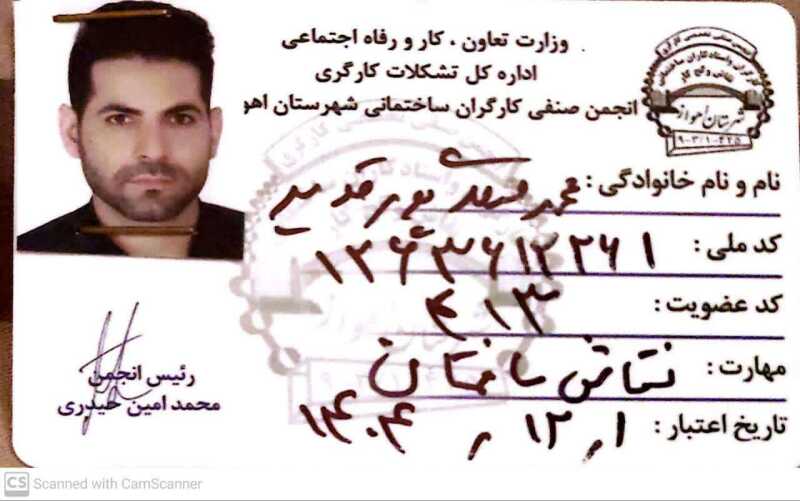 وزارت تعاون ، کار و رفاه اجتماعی
اداره کل تشکلات کارگری
انجمن صنفی کارگران ساختمانی شهرستان اهو
شهرستان اهواز
۹-۳/۱۰-۴۲۵
نام و نام خانوادگی : محمد مهدی پور قدیر
کد ملی : ۱۲۶۳۶۱۲۲۶۱
کد عضویت : ۴۱۳
مهارت : نقاش ساختمان
تاریخ اعتبار : ۱ر۱۲ر۱۴۰۴
رئیس انجمن
محمد امین حیدری
CS Scanned with CamScanner